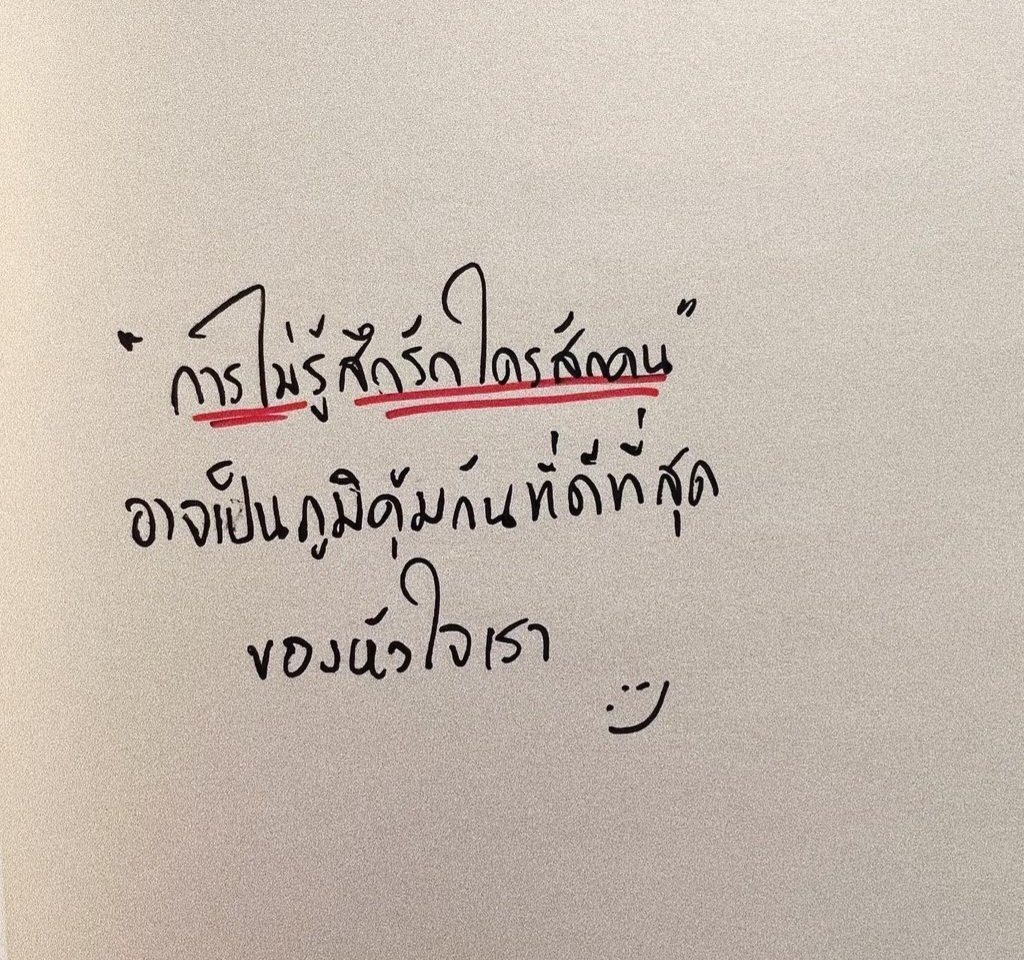 "การไม่รู้สึกรักใครสักคน"
อาจเป็นภูมิคุ้มกันที่ดีที่สุด
ของหัวใจเรา